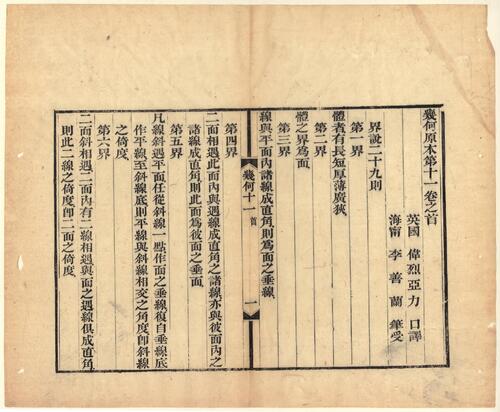 幾何原本第十一卷之首
英國 偉烈亞力 口譯
海甯 李善蘭 筆受
界說二十九則
第一界
體者有長短厚薄廣狹
第二界
體之界為面
第三界
線與平面內諸線成直角則為面之垂線
幾何十一 首 一
第四界
二面相遇此面內與遇線成直角之諸線亦與彼面內之
諸線成直角則此面為彼面之垂面
第五界
凡線斜遇平面任從斜線一點作面之垂線復自垂線底
作平線至斜線底則平線與斜線相交之角度卽斜線
之倚度
第六界
二面斜相遇二面內有二線相遇與面之遇線俱成直角
則此二線之倚度卽二面之倚度